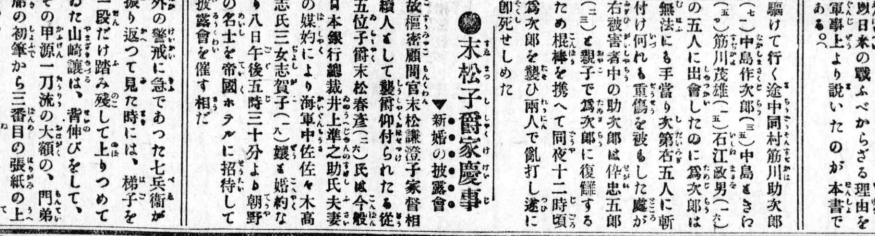 日米の戰ふべからざる理由を
軍事上より説いたのが本書で
ある。
駆けて行く途中同村筋川助次郎
(七)中島作次郎(三)中島ときわ
(五)筋川茂雄(五)石江政男(六)
の五人に出會したのに爲次郎は
無法にも手當り次第右五人に斬
付け何れも重傷を被らした處が
右被害者中の助次郎は伜忠五郎
(三)と親子で爲次郎に復讐する
ため棍棒を携へて同夜十二時頃
爲次郎を襲ひ兩人で亂打し遂に
即死せしめた
●末松子爵家慶事
▼新婚の披露會
故樞密顧問官末松謙澄子家督相
續人として襲爵仰付られたる從
五位子爵末松春彦(二六)氏は今般
日本銀行總裁井上準之助氏夫妻
の媒妁により海軍中佐佐々木高
志氏三女志賀子(一八)孃と婚約な
り八日午後五時三十分より朝野
の名士を帝國ホテルに招待して
披露會を催す相だ
外の警戒に急であつた七兵衛が
振り返つて見た時には、梯子を
一段だけ踏み殘して上りつめて
ゐた山崎讓は、背伸びをして、
その甲源一刀流の大額の、門弟
席の初筆から三番目の張紙の上